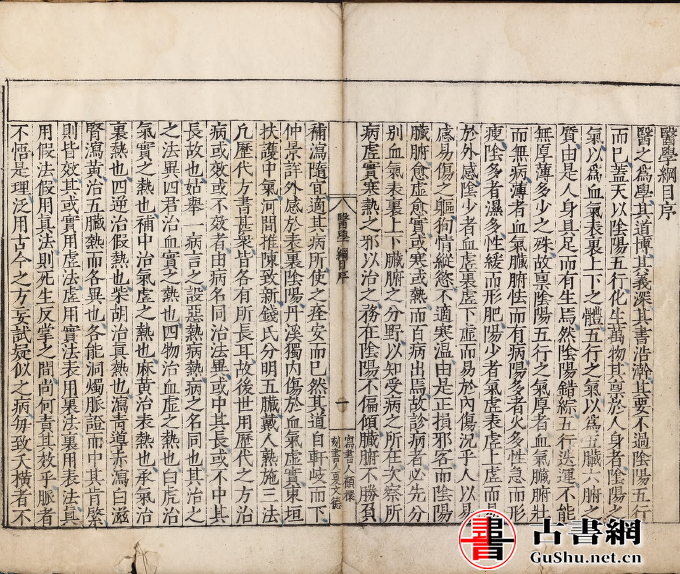 醫學綱目序
醫之爲學其道博其義深其書浩瀚其要不過陰陽五行
而已蓋天以陰陽五行化生萬物其稟於人身者陰陽之
氣以爲血氣表裏上下之體五行之氣以爲五臟六腑之
質由是人身具足而有生焉然陰陽錯綜五行迭運不能
無厚薄多少之殊故稟陰陽五行之氣厚者血氣臟腑壯
而無病薄者血氣臟腑怯而有病陽多者火多性急而形
瘦陰多者濕多性緩而形肥陽少者氣虛表虛上虛而易
於外感陰少者血虛裏虛下虛而易於內傷況乎人以易
感易傷之軀徇情縱慾不適寒温由是正損邪客而陰陽
臟腑愈虛愈實或寒或熱而百病出焉故診病者必先分
別血氣表裏上下臟腑之分野以知受病之所在次察所
病虛實寒熱之邪以治之務在陰陽不偏傾臟腑不勝負
補瀉隨宜適其病所使之痊安而已然其道自軒岐而下
仲景詳外感於表裏陰陽丹溪獨內傷於血氣虛實東垣
扶護中氣河間推陳致新錢氏分明五臟戴人熟施三法
凡歷代方書甚衆皆各有所長耳故後世用歷代之方治
病或效或不效者由病名同治法異或中其長或不中其
長故也姑舉一病言之設惡熱病熱病之名同也其治之
之法異四君治血實之熱也四物治血虛之熱也白虎治
氣實之熱也補中治氣虛之熱也麻黃治表熱也承氣治
裏熱也四逆治假熱也柴胡治真熱也瀉青導赤瀉白滋
腎瀉黃治五臟熱而各異也各能洞燭脈證而中其肯綮
則皆效其或實用虛法虛用實法表用裏法裏用表法真
用假法假用真法則死生反掌之間尚何責其效乎脈者
不悟是理泛用古今之方妄試疑似之病每致夭橫者不
醫學綱目序
一
古書網
GuShu.net.cn
書